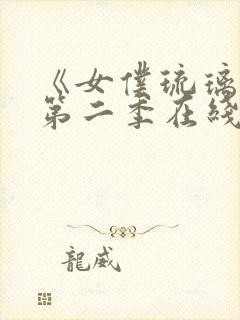 《女僕琉璃
第二季在綫
龍威